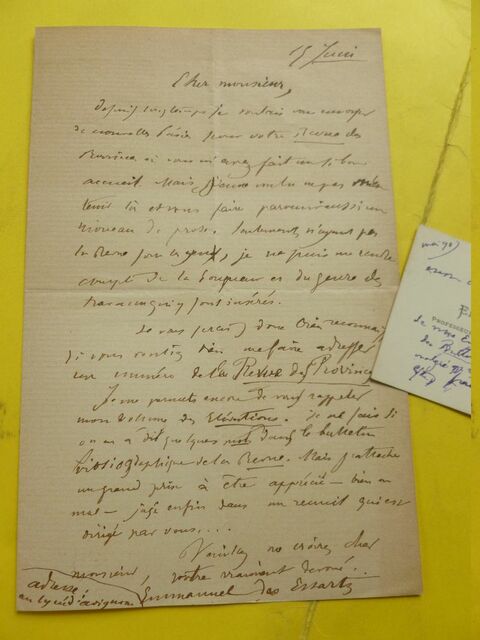 15 Juin
Cher monsieur,
Depuis longtemps je voulais vous envoyer
de nouvelles Poésies pour votre Revue des
Provinces où vous m'avez fait un si bon
accueil. Mais j'aurais voulu ne pas m'en
tenir là et vous faire parvenir aussi un
morceau de prose. Seulement n'ayant pas
la Revue sous les yeux, je ne puis me rendre
compte de la longueur et du genre des
travaux qui y sont insérés.
Je vous serais donc très reconnais
si vous vouliez bien me faire adresser
un numéro de la Revue des Provinces
Je me permets encore de vous rappeler
mon volume des Elévations. Je ne sais si
on en a dit quelques mots dans le bulletin
bibliographique de la Revue. Mais j'attache
un grand prix à être apprécié - bien ou
mal - jugé enfin dans un recueil qui est
dirigé par vous...
Veuillez me croire, cher
monsieur, votre vraiment dévoué.
Emmanuel des Essarts
adresse:
au lycée d'avignon
PROFESSEUR
du Bull
malgré